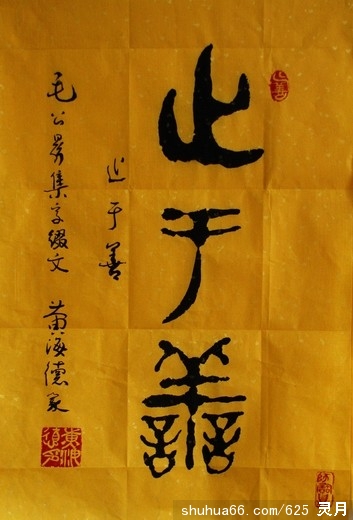 止善
止于善
止于善
毛公鼎集字缀文 黄海德
shuhua66.com/625 灵月